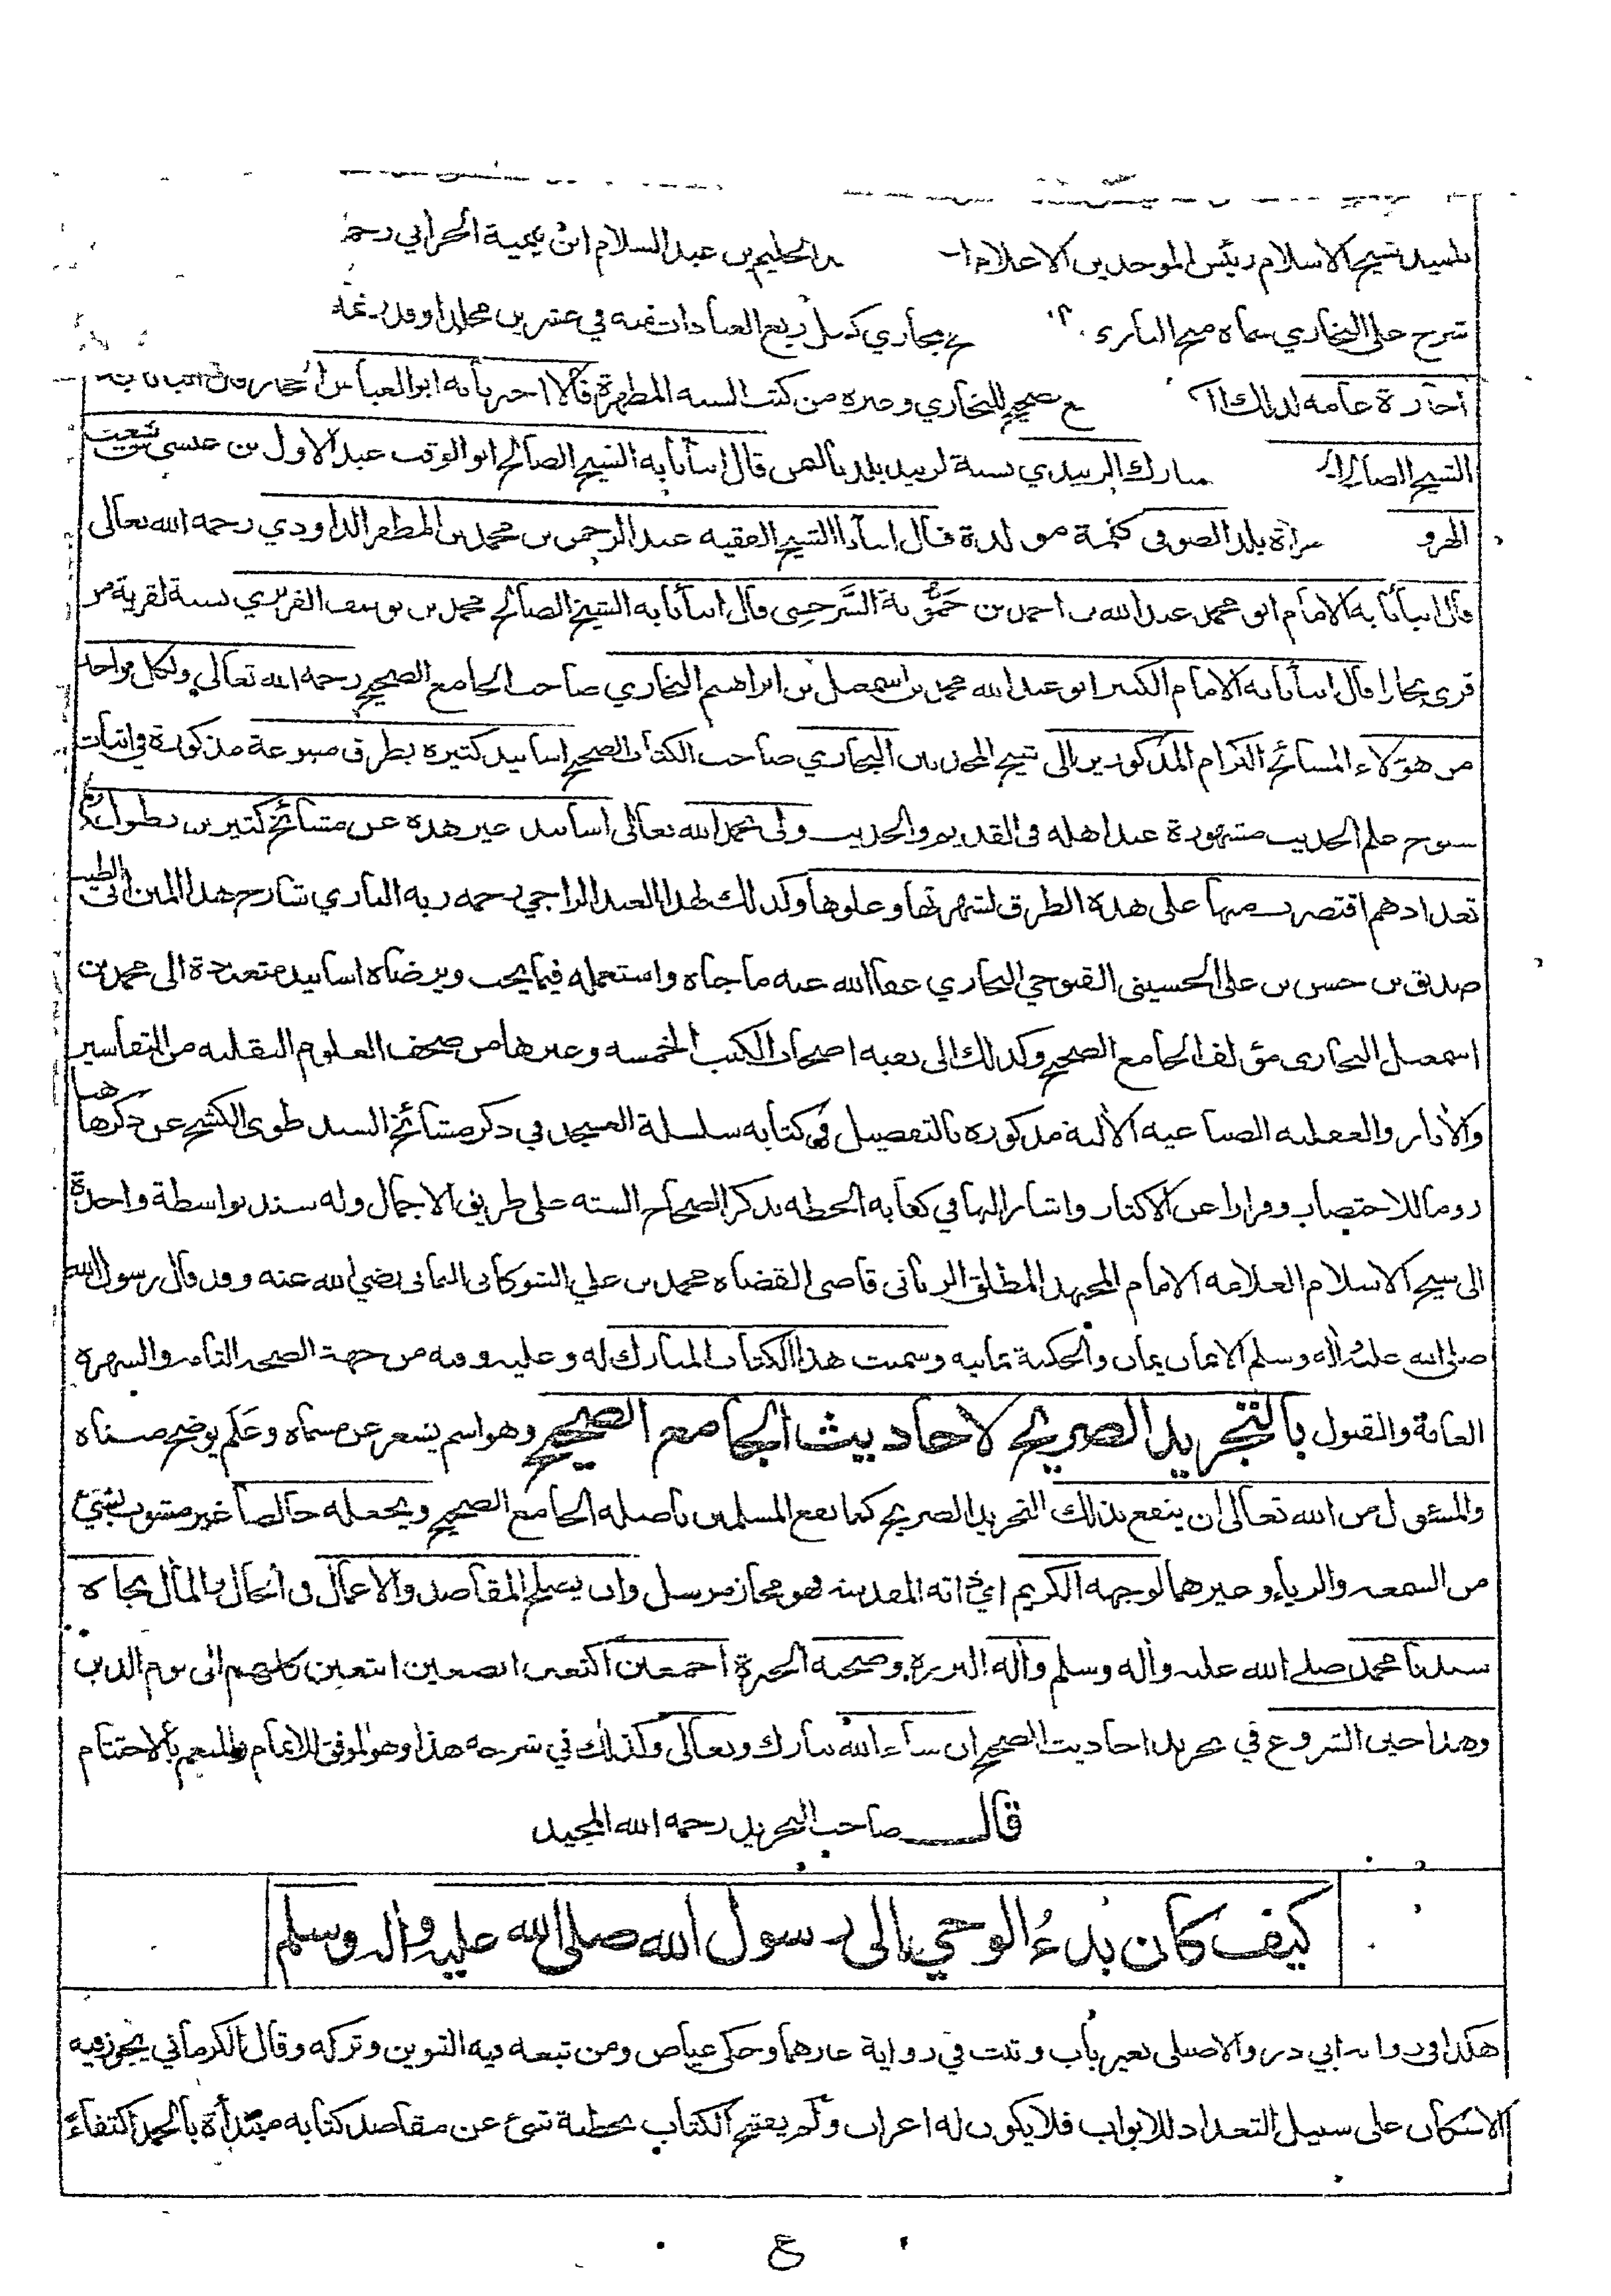 شيخ الاسلام رئيس الموحدين الاعلام عبد الحليم بن عبد السلام ابن تيمية الحراني
شرح على البخاري سماه منح الباري بخاري كمل ربع العبادات منه في عشرين مجلدا وقد
اجازة عامة لذلك صحيح البخاري وغيره من كتب السنة المطهرة قالا اخبرنا به ابو العباس الحجار
الشيخ الصالح مبارك الزبيدي نسبة لزبيد بلد باليمن قال انبأنا به الشيخ الصالح ابو الوقت عبد الاول بن عيسى بن شعيب
الهروي هراة بلد الصوفي قال انبأنا الشيخ الفقيه عبد الرحمن بن محمد بن المظفر الداودي رحمه الله تعالى
قال انبأنا به الامام ابو محمد عبد الله بن احمد بن حمويه السرخسي قال انبأنا به الشيخ الصالح محمد بن يوسف الفربري نسبة لقرية من
قرى بخارا قال انبأنا به الامام الكبير ابو عبد الله محمد بن اسمعيل بن ابراهيم البخاري صاحب الجامع الصحيح رحمه الله تعالى ولكل واحد
من هؤلاء المشائخ الكرام المذكورين الى شيخ المحدثين البخاري صاحب الكتاب الصحيح اسانيد كثيرة بطرق متنوعة مذكورة في اثبات
شيوخ علم الحديث مشهورة عند اهله في القديم والحديث ولي بحمد الله تعالى اسانيد غير هذه عن مشائخ كثيرين يطول ذكر
تعدادهم اقتصرت منها على هذه الطرق لشهرتها وعلوها وكذلك لهذا العبد الراجي رحمة ربه الباري شارح هذا المتن ابي الطيب
صديق بن حسن بن علي الحسيني القنوجي البخاري عفا الله عنه ما جناه واستعمله فيما يحب ويرضاه اسانيد متعددة الى محمد بن
اسمعيل البخاري مؤلف الجامع الصحيح وكذلك الى بقية اصحاب الكتب الخمسة وغيرها من صحف العلوم النقلية من التفاسير
والآثار والعقلية الصناعية الآلية مذكورة بالتفصيل في كتابه سلسلة العسجد في ذكر مشائخ السند طوى الكشح عن ذكرها هنا
روما للاختصار وفرارا عن الاكثار واشار اليها في كتابه الحطة بذكر الصحاح الستة على طريق الاجمال وله سند بواسطة واحدة
الى شيخ الاسلام العلامة الامام المجتهد المطلق الرباني قاضي القضاة محمد بن علي الشوكاني اليماني رضي الله عنه وقد قال رسول الله
صلى الله عليه وآله وسلم الايمان يمان والحكمة يمانية وسميت هذا الكتاب المبارك له وعليه وفيه من جهة الصحة التامة والشهرة
العامة والقبول بالتجريد الصريح لاحاديث الجامع الصحيح وهو اسم يشعر عن مسماه وعلم يوضح معناه
والمسئول من الله تعالى ان ينفع بذلك التجريد الصريح كما نفع المسلمين باصله الجامع الصحيح ويجعله خالصا غير مشوب بشيئ
من السمعة والرياء وغيرهما لوجهه الكريم اي ذاته المقدسة فهو مجاز مرسل وان يصلح المقاصد والاعمال في الحال والمآل بجاه
سيدنا محمد صلى الله عليه وآله وسلم وآله البررة وصحبه الخيرة اجمعين اكتعين ابصعين ابتعين كلهم الى يوم الدين
وهذا حين الشروع في تجريد احاديث الصحيح ان شاء الله تبارك وتعالى وكذلك في شرحه هذا وهو الموفق للاتمام والمنعم بالاختتام
قال صاحب التجريد رحمه الله المجيد
كيف كان بدء الوحي الى رسول الله صلى الله عليه وآله وسلم
هكذا في رواية ابي ذر والاصيلي بغير باب وثبت في رواية غيرهما وحكى عياض ومن تبعه فيه التنوين وتركه وقال الكرماني يجوز فيه
الاسكان على سبيل التعداد للابواب فلا يكون له اعراب ولم يفتتح الكتاب بخطبة تنبئ عن مقاصد كتابه مبتدأة بالحمد اكتفاءً
ع